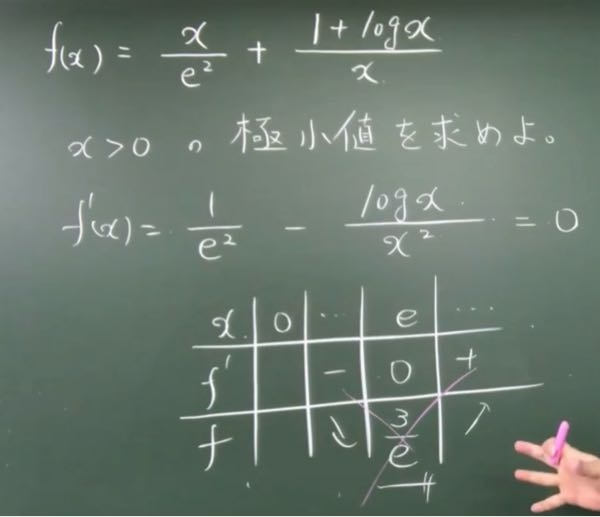 f(x) = x/e² + (1 + log x)/x
x > 0 の 極小値を求めよ。
f'(x) = 1/e² - (log x)/x² = 0
x 0 … e …
f' - 0 +
f ↘ 3/e ↗